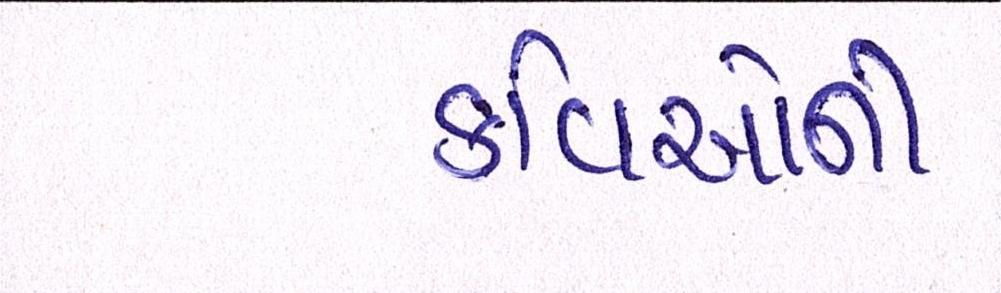 કવિઓની